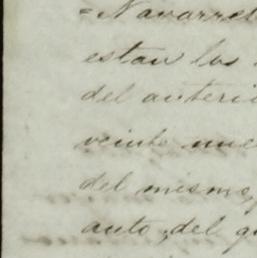 =Navarret
estan los
del anteri
veinte nue
del mismo,
auto, del q